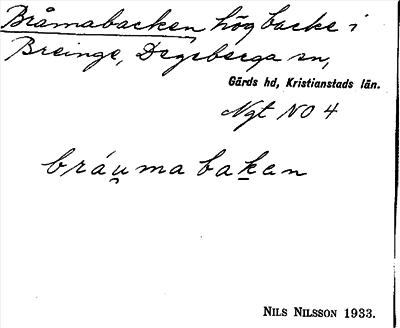 Bråmabacken hög backe i
Breinge, Degeberga sn,
Gärds hd, Kristianstads län.
Ngt NO 4
bráu̯ma baḵan
NILS NILSSON 1933.